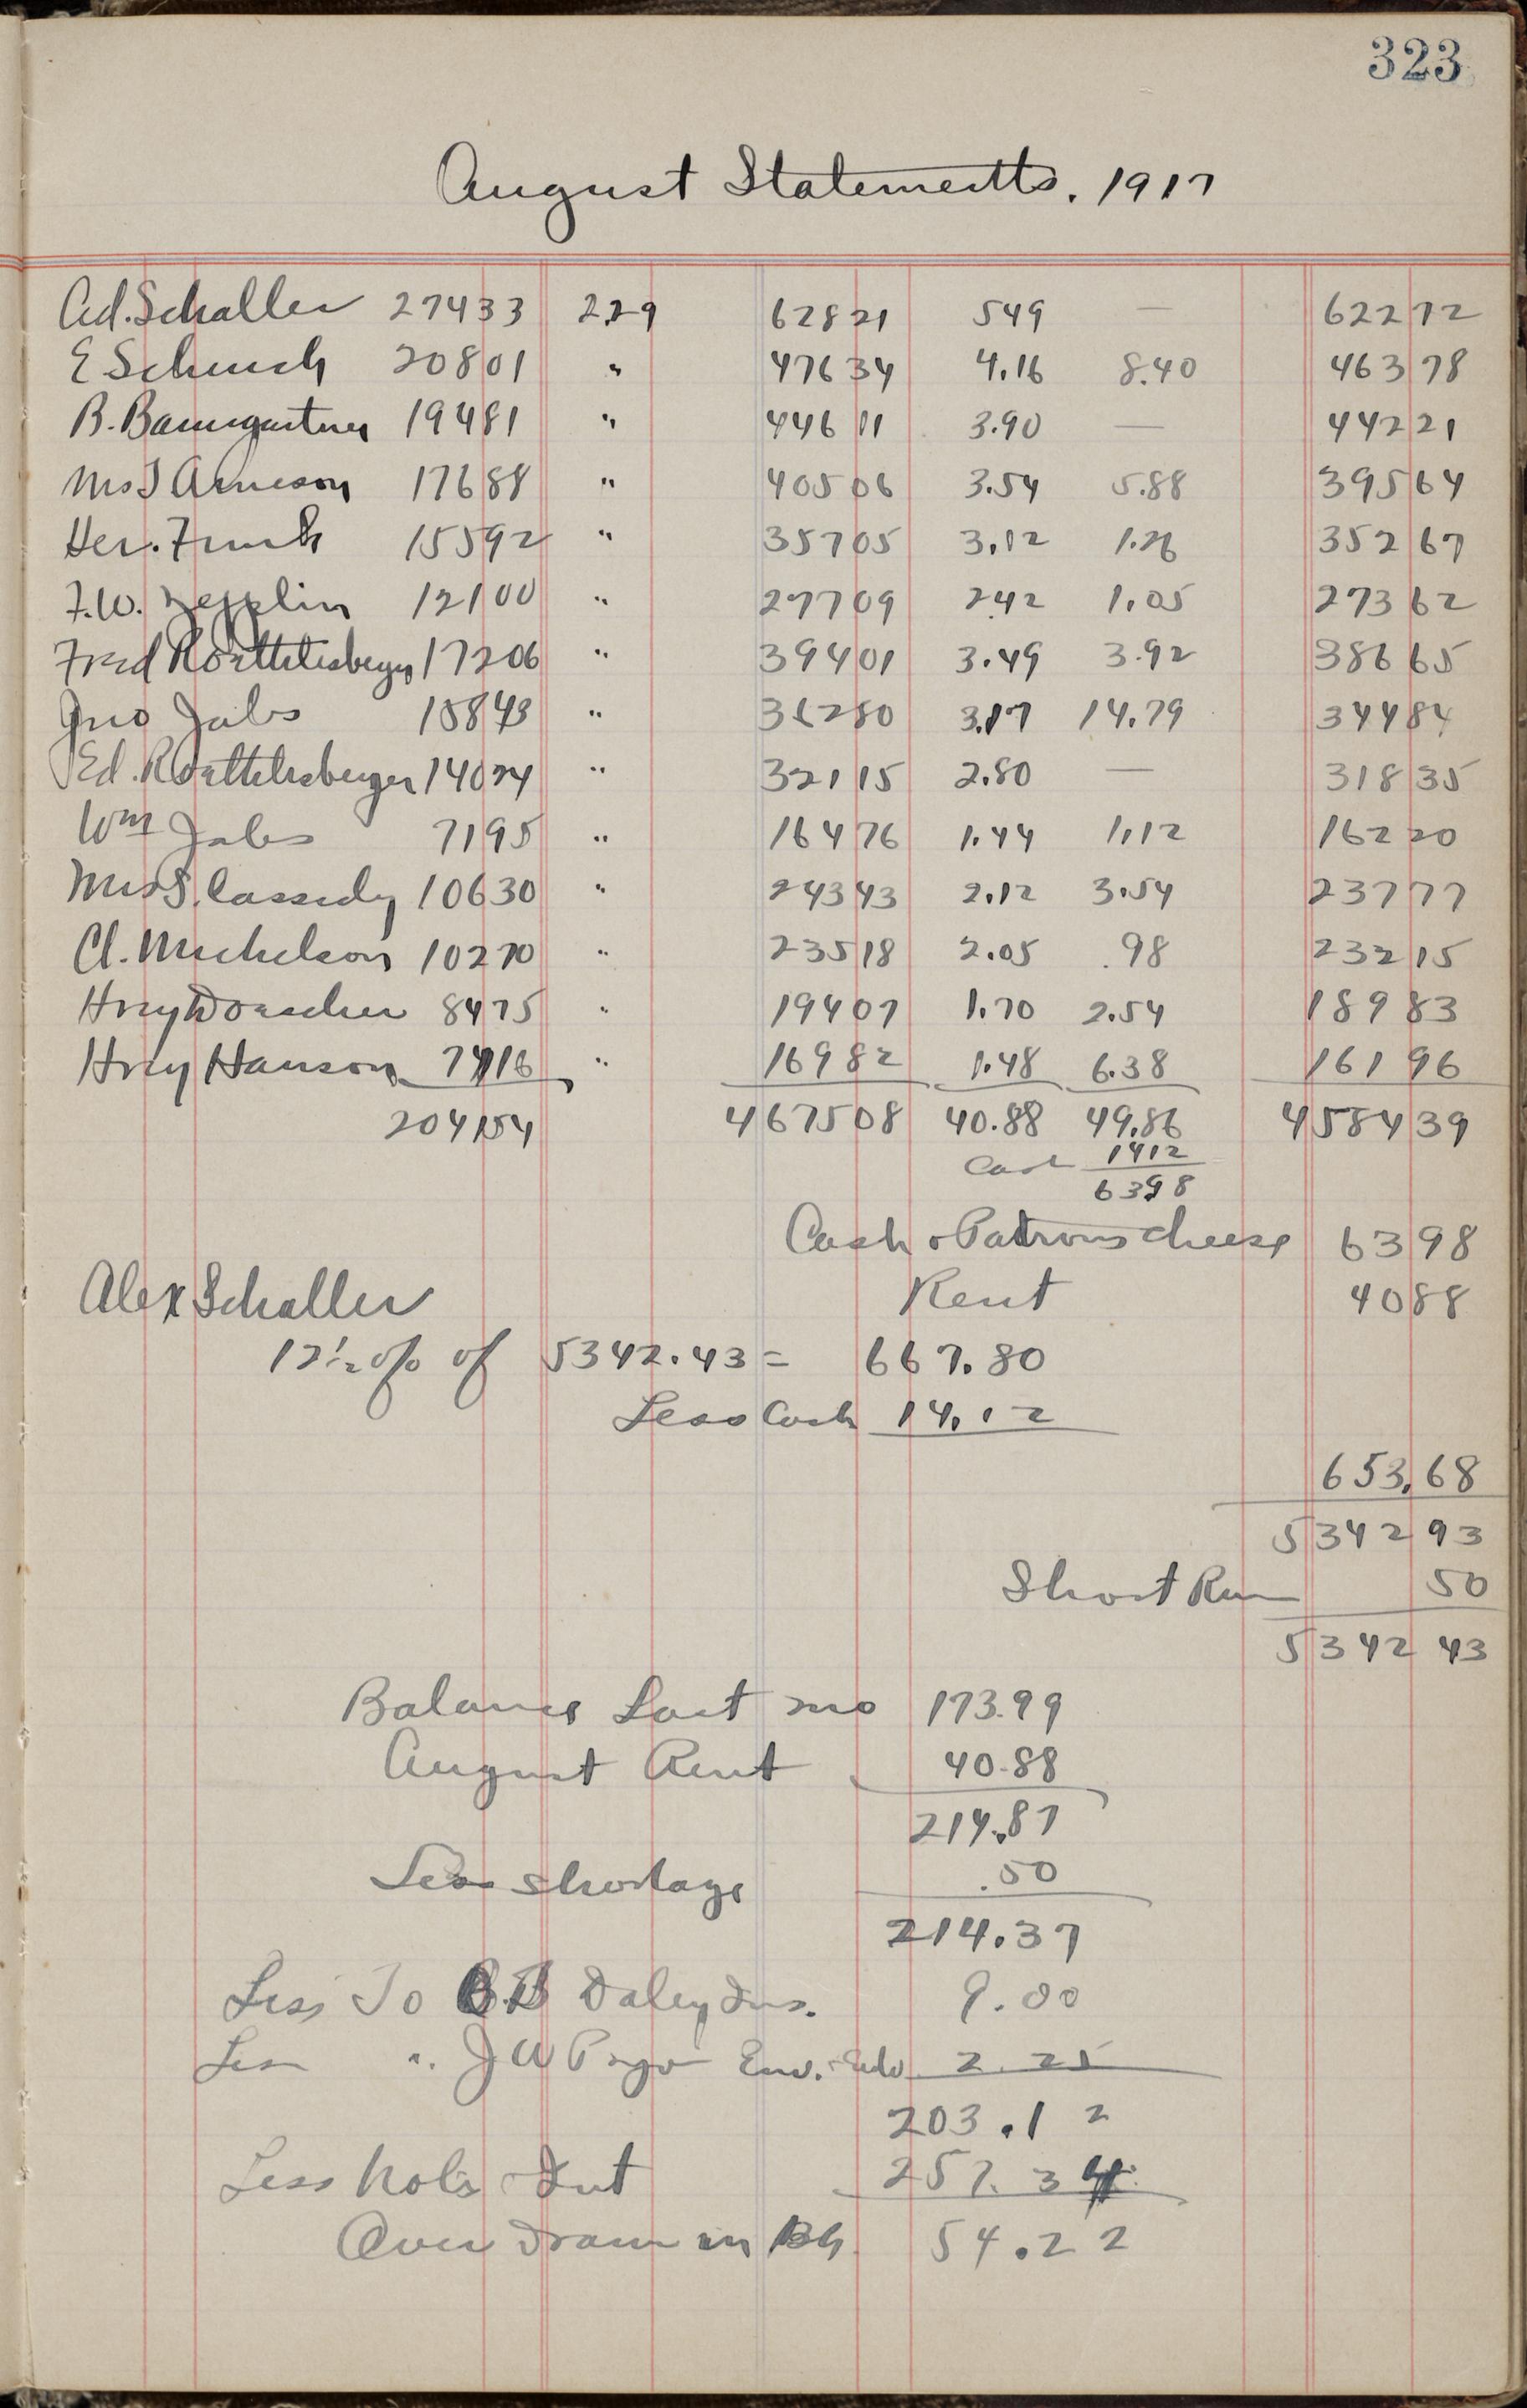 323
August Statements. 1917
Ad. Schaller 27433 2.29 62821 549 — 62272
E Schuch 20801 " 47634 4.16 8.40 46378
B. Baumgartner 19481 " 44611 3.90 — 44221
Mrs J Arneson 17688 " 40506 3.54 5.88 39564
Her. Funk 15592 " 35705 3.12 1.26 35267
F.W. Zepplin 12100 " 27709 2.42 1.05 27362
Fred Roethlisberger 17206 " 39401 3.49 3.92 38665
Jno Jabs 15843 " 36280 3.17 14.79 34484
Ed. Roethlisberger 14024 " 32115 2.80 — 31835
Wm Jabs 7195 " 16476 1.44 1.12 16220
Mrs S. Cassidy 10630 " 24343 2.12 3.54 23777
Cl. Michelson 10270 " 23518 2.05 .98 23215
Hry Doescher 8475 " 19407 1.70 2.54 18983
Hry Hanson 7416 " 16982 1.48 6.38 16196
204154 467508 40.88 49.86 458439
Cash 1412
6398
Cash & Patrons cheese 6398
Alex Schaller Rent 4088
12½% of 5342.43 = 667.80
Less Cash 14.12
653.68
534293
Short Rem 50
534243
Balance Last mo 173.99
August Rent 40.88
214.87
Less shortage .50
214.37
Less To Daley Ins. 9.00
Less " J W Env. 2.25
203.12
Less Note & Int 257.34
Over drawn in Bk 54.22